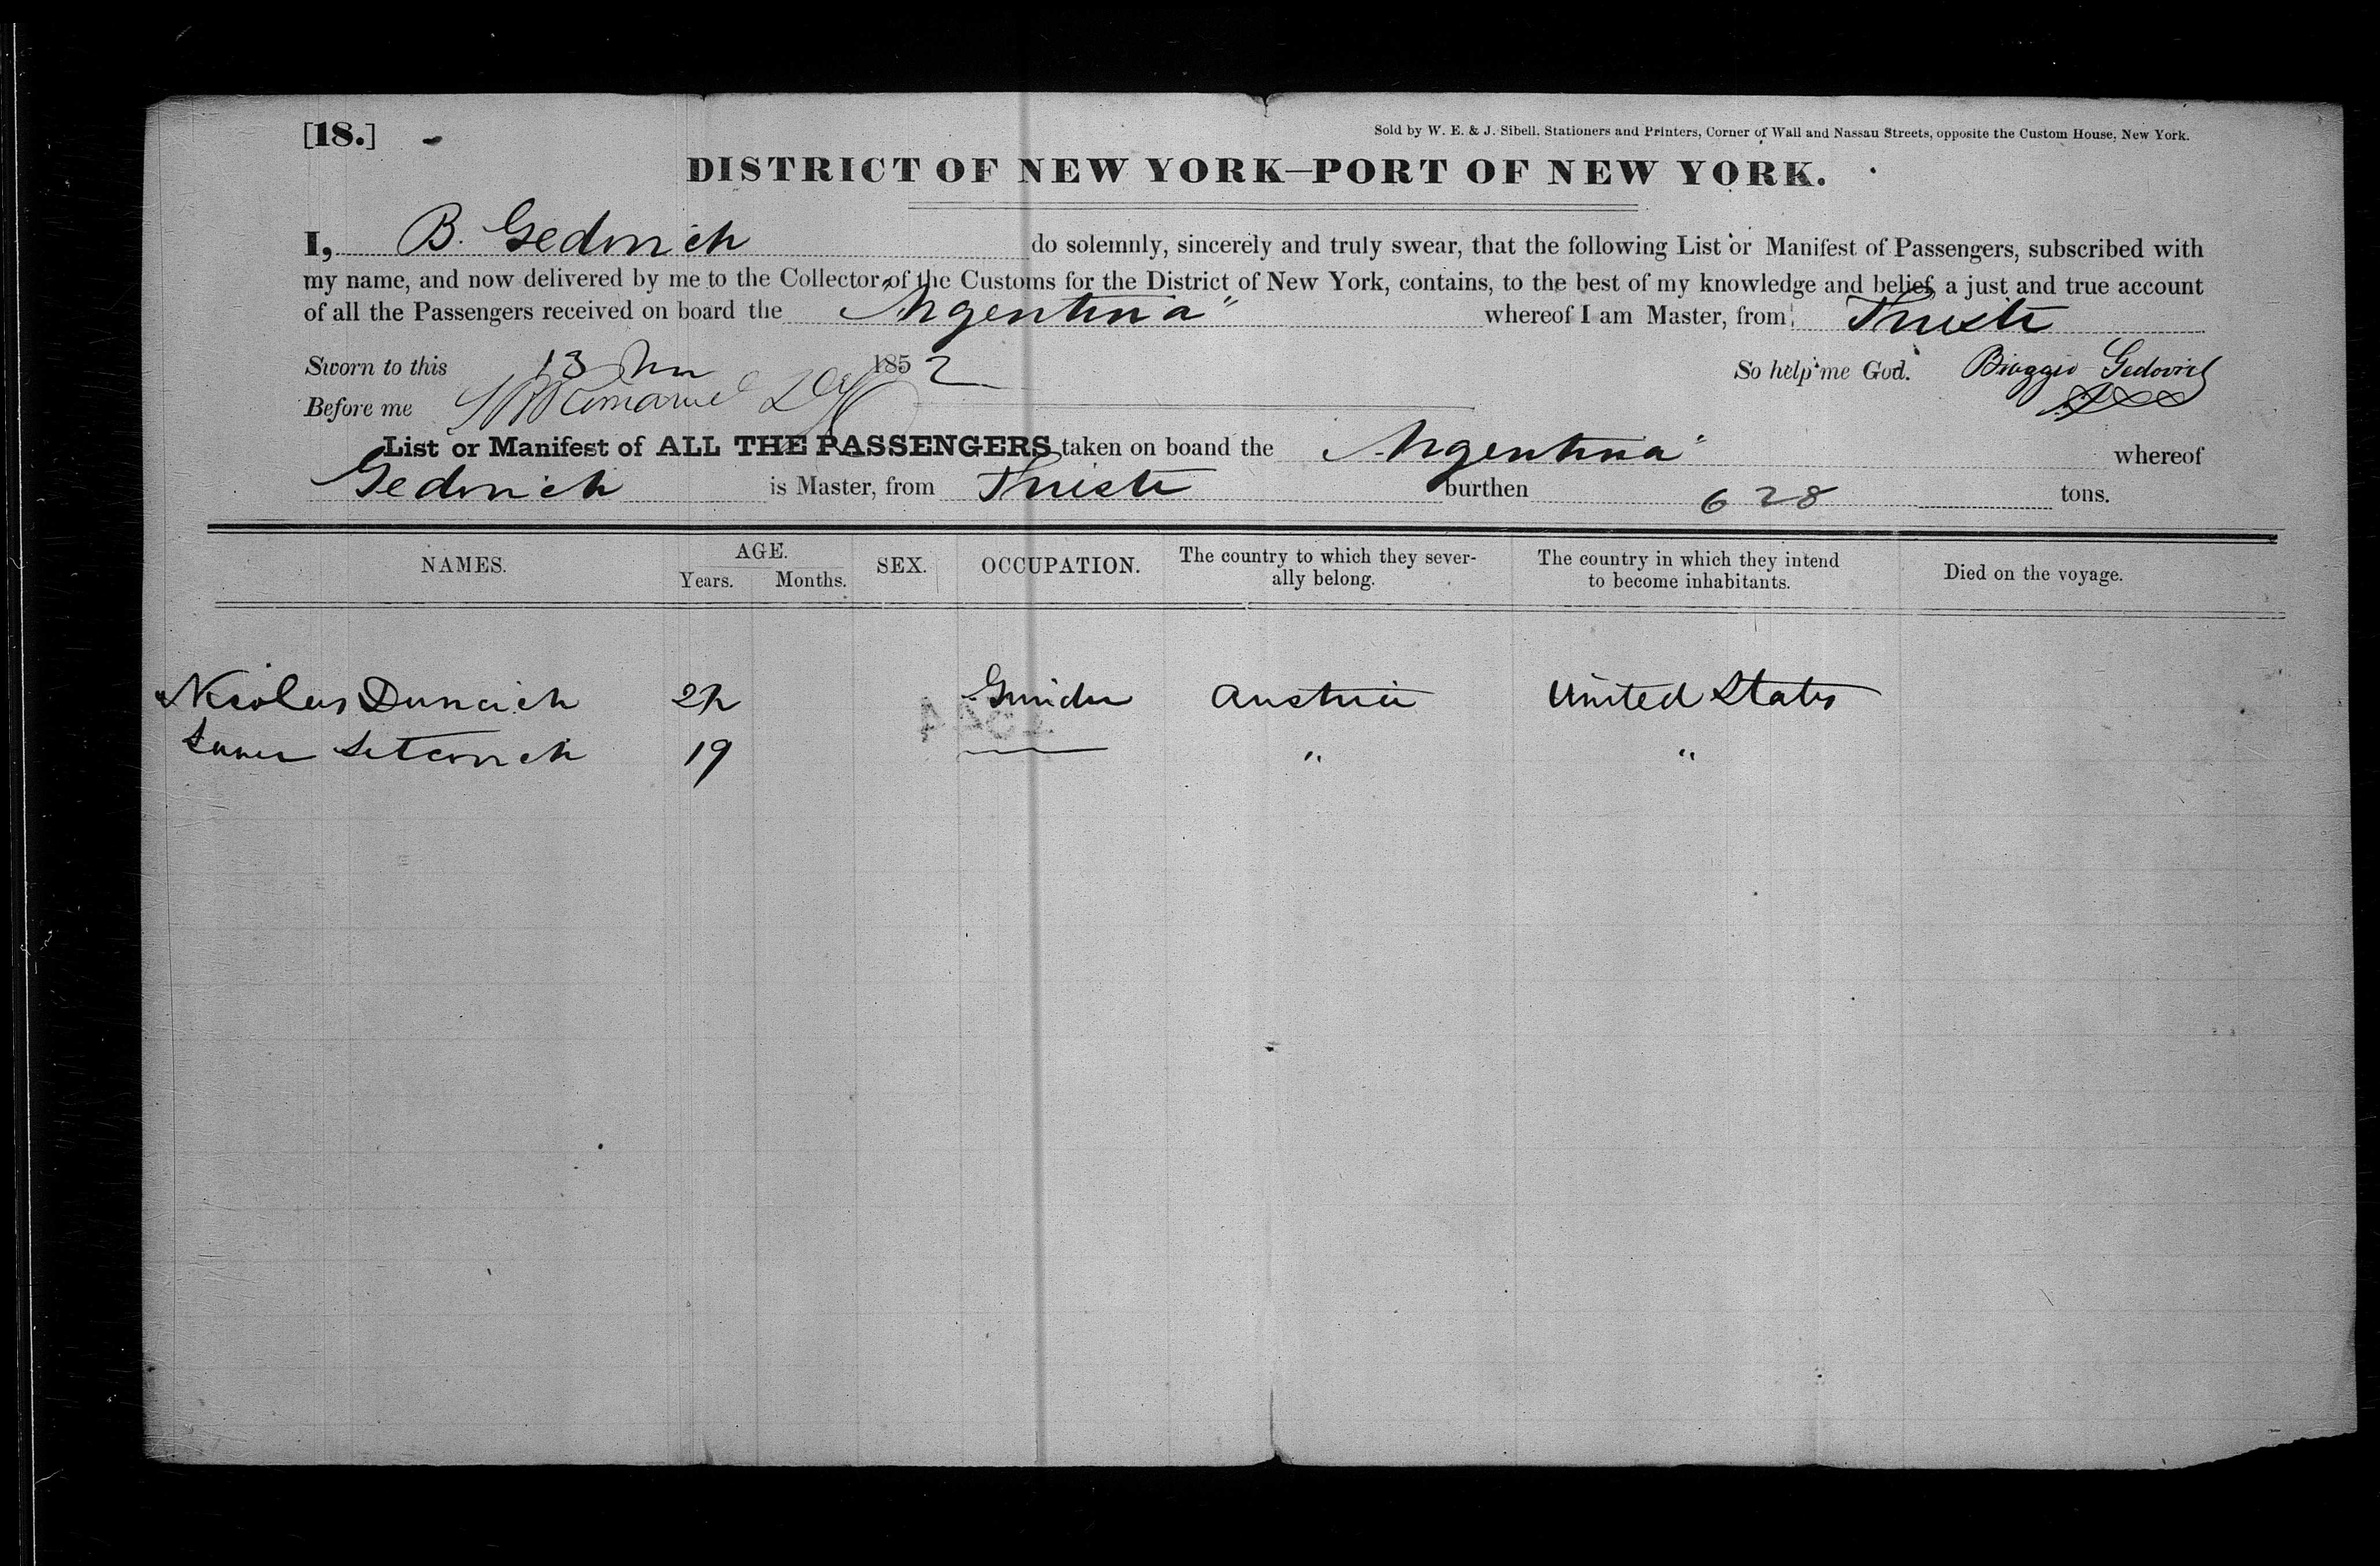 [18.]
Sold by W. E. & J. Sibell, Stationers and Printers, Corner of Wall and Nassau Streets, opposite the Custom House, New York.
DISTRICT OF NEW YORK—PORT OF NEW YORK.
I, B. Gedovich do solemnly, sincerely and truly swear, that the following List or Manifest of Passengers, subscribed with
my name, and now delivered by me to the Collector of the Customs for the District of New York, contains, to the best of my knowledge and belief, a just and true account
of all the Passengers received on board the "Argentina" whereof I am Master, from Trieste
Sworn to this 13 1852 So help me God. Biaggio Gedovich
Before me
List or Manifest of ALL THE PASSENGERS taken on boand the "Argentina" whereof
Gedovich is Master, from Trieste burthen 628 tons.
NAMES. AGE. SEX. OCCUPATION. The country to which they sever- The country in which they intend Died on the voyage.
Years. Months. ally belong. to become inhabitants.
Nicolas 22 Austria United States
19 " "